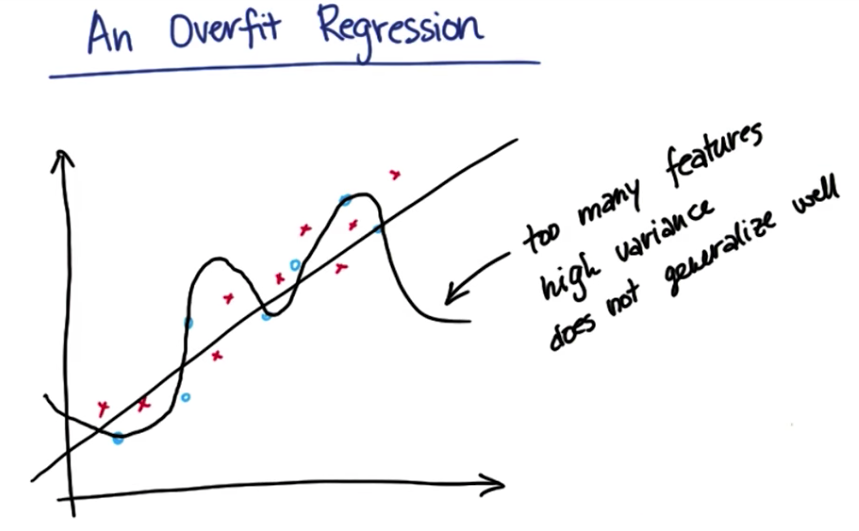 An Overfit Regression
too many features
high variance
does not generalize well